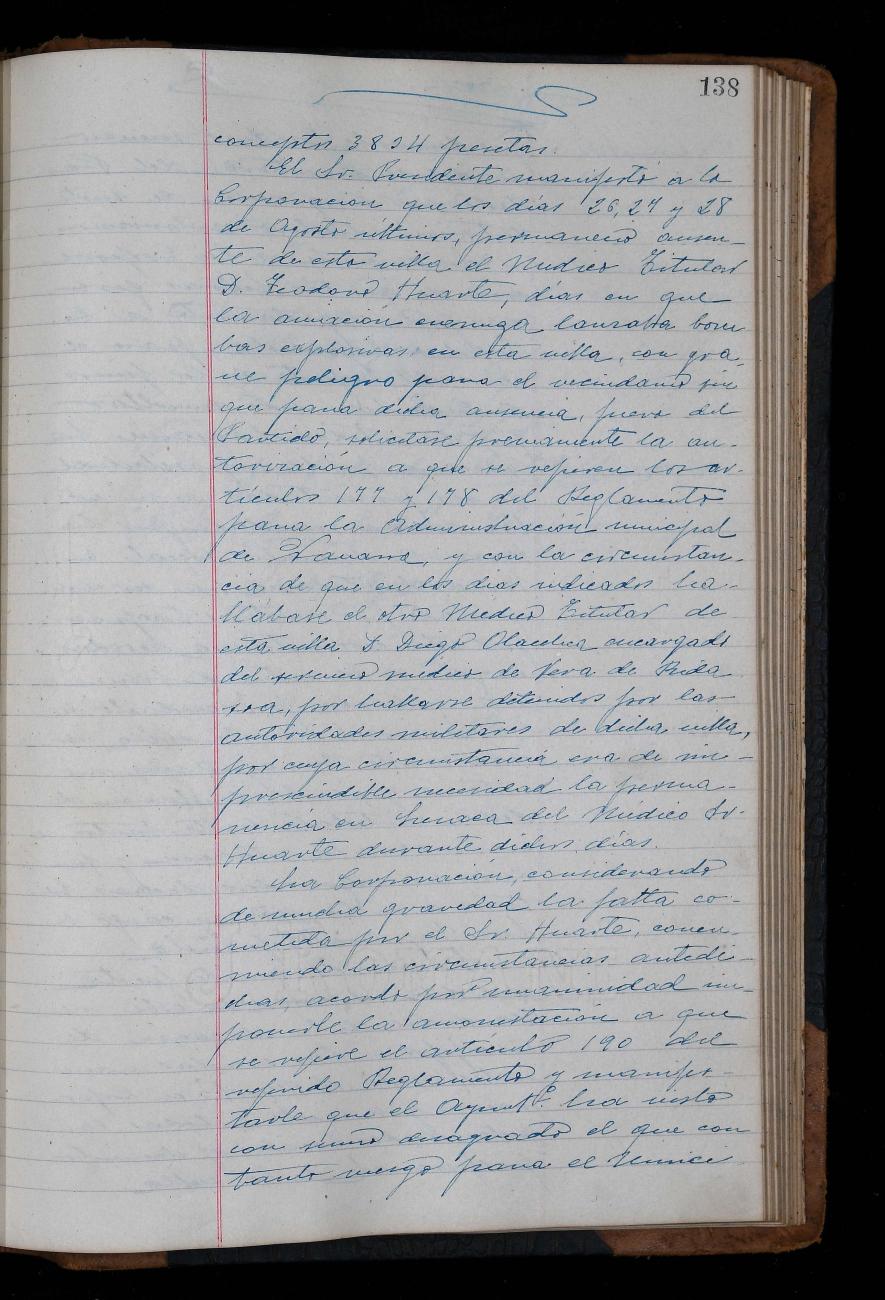 138
conceptos 3824 pesetas.
El Sr. Presidente manifestó a la
Corporación que los días 26, 27 y 28
de Agosto últimos, permaneció ausen-
te de esta villa el Médico Titular
D. Teodoro Huarte, días en que
la aviación enemiga lanzaba bom
bas explosivas en esta villa, con gra
ve peligro para el vecindario sin
que para dicha ausencia, fuera del
Partido, solicitase previamente la au-
torización a que se refieren los ar-
tículos 177 y 178 del Reglamento
para la Administración municipal
de Navarra, y con la circunstan-
cia de que en los dias indicados ha-
llábase el otro Médico Titular de
esta villa D. Diego Olaechea encargado
del servicio médico de Vera de Bida
soa, por hallarse detenidos por las
autoridades militares de dicha villa,
por cuya circunstancia era de im-
prescindible necesidad la perma-
nencia en Lesaca del Médico Sr.
Huarte durante dichos días.
La Corporación, considerando
de mucha gravedad la falta co-
metida por el Sr. Huarte, concu-
rriendo las circunstancias antedi-
chas, acordó por unanimidad im-
ponerle la amonestación a que
se refiere el artículo 190 del
referido Reglamento y manifes-
tarle que el Ayuntº. ha visto
con sumo desagrado el que con
tanto riesgo para el